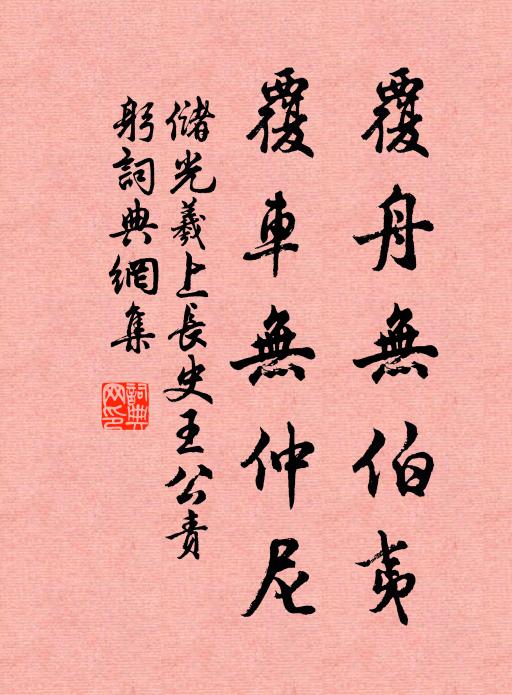 覆舟無伯夷
覆車無仲尼
儲光羲上長史王公責
躬詞典網集
詞典
网印